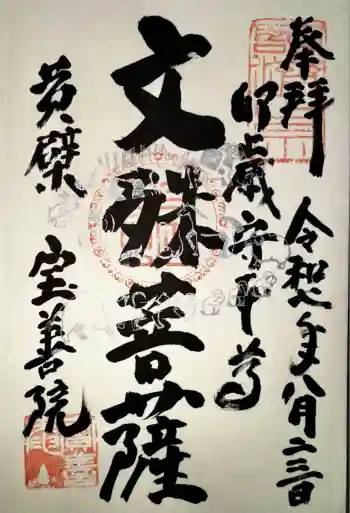 奉拝
卯歳守本尊
令和年八月二三日
文殊菩薩
黄檗 宝善院